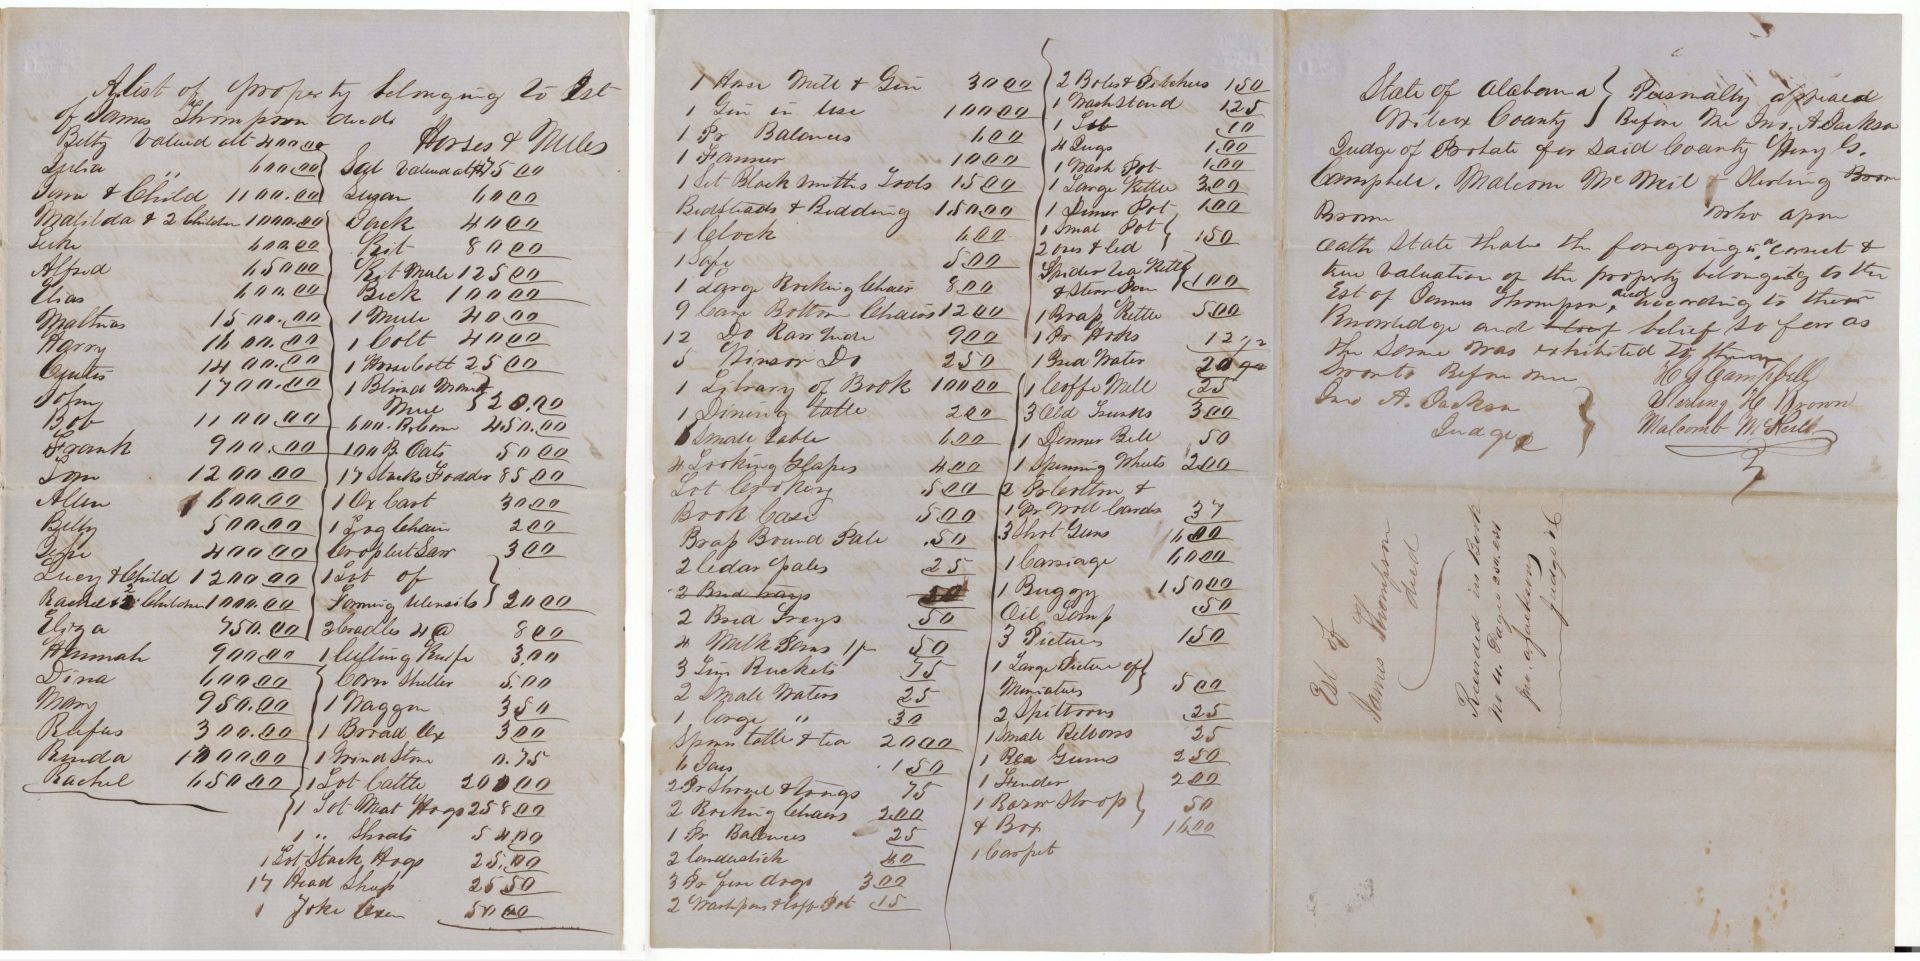 A list of Property belonging to Est
of James Thompson decd
Betty Valued att 400.00
Julia 600.00
Jane & Child 1100.00
Matilda & 2 Children 1000.00
600.00
Alfred 650.00
Elias 600.00
Mathias 1500.00
Harry 1600.00
1400.00
John 1700.00
Bob 1100.00
Frank 900.00
Tom 1200.00
Allen 1600.00
Billy 500.00
400.00
Lucy & Child 1200.00
Rachel & 2 Children 1000.00
Eliza 750.00
Hannah 900.00
Dina 600.00
Mary 950.00
Rufus 300.00
1000.00
Rachel 650.00
Horses & Mules
Sal Valued at 75 00
Suzan 60 00
Jack 40 00
Kit 80 00
Kit Mule 125 00
Beck 100 00
1 Mule 40 00
1 Colt 40 00
1 Horse Colt 25 00
1 Blind
Mule 20.00
600. B. Corn 450.00
100 B. Oats 50 00
17 Stacks Fodder 85 00
1 Ox Cart 30 00
1 Log Chain 2 00
Crosscut Saw 3 00
1 Lot of
Farming Utensils 20 00
2 Cradles 4@ 8 00
1 Cutting Knife 3.00
Corn Sheller 5.00
1 Waggon 3 50
1 Broad Ax 3 00
1 Grind Stone 0.75
1 Lot Cattle 200 00
1 Lot Meat Hogs 258.00
1 " Shoats 54.00
1 Lot Stock Hogs 25.00
17 Head Sheep 25 50
1 Yoke Oxen 50 00
1 Horse Mill & Gin 30 00
1 Gin in Use 100 00
1 Pr Balances 6.00
1 Fanner 10 00
1 Set Black Smiths Tools 15 00
Bedsteads & Bedding 150.00
1 Clock 6.00
1 Safe 5 00
1 Large Rocking Chair 8 00
9 Cane Bottom Chairs 12 00
12 Do Raw hide 9 00
5 Winsor Do 2 50
1 Library of Book 100 00
1 Dining table 2 00
Small table 6 00
4 Looking Glasses 4 00
Lot Crockery 5 00
Book Case 5 00
Brass Bound Pale .50
2 Cedar pales 25
2 Bred trays 50
2 Bred Treys 50
4 Milk Pans 50
3 Tin Buckets 75
2 Small Waters 25
1 large " 30
Spoons table & tea 20 00
6 Jars 1 50
2 Pr Shovel & tongs 75
2 Rocking Chairs 2.00
1 Pr Balances 25
2 Candlestick 40
3 Pr fire dogs 3 00
2 Washpans & Coffe Pot 15
2 Boles & Pitchers 1 50
1 Wash Stand 1 25
1 10
4 Jugs 1.00
1 Wash Pot 1.00
1 Large Kettle 3.00
1 Dinner Pot 1.00
1 Small Pot
2 ovens & led 1 50
Spider Tea Kettle
& Stew Pan 1 00
1 Brass Kettle 5 00
1 Pr Hooks 12 1/2
1 Bred Water 20
1 Coffe Mill 25
3 Old Trunks 3 00
1 Dinner Bell 50
1 Spinning Wheels 2 00
2 Pr Cotton &
1 Pr Wool Cards 37
3 Shot Guns 16 00
1 Carriage 60 00
1 Buggy 150 00
Oil Lamp 50
3 Pictures 1 50
1 Large Picture of
Miniatures 5 00
2 Spittoons 25
1 Small Ribbons 25
1 Guns 2 50
1 Fender 2 00
1 Razor Strop
& Box 50
1 Carpet 16.00
State of Alabama } Personally appeared
Wilcox County } Before Me Jno. A Jackson
Judge of Probate for said County Henry G.
Campbell, Malcom McNeil & Sterling Brown
Brown who apon
oath State that the foregoing is a correct &
true valuation of the property belonging to the
Est of James Thompson, decd according to their
Knowledge and belief so far as
the same was exhibited to them
Sworn to Before me
Jno A. Jackson
Judge
H G Campbell
Sterling H Brown
Malcomb McNeill
Est of
James Thompson
decd
Recorded in Book
No 4. Pages 250.251
Jno. A Jackson
Judge &c